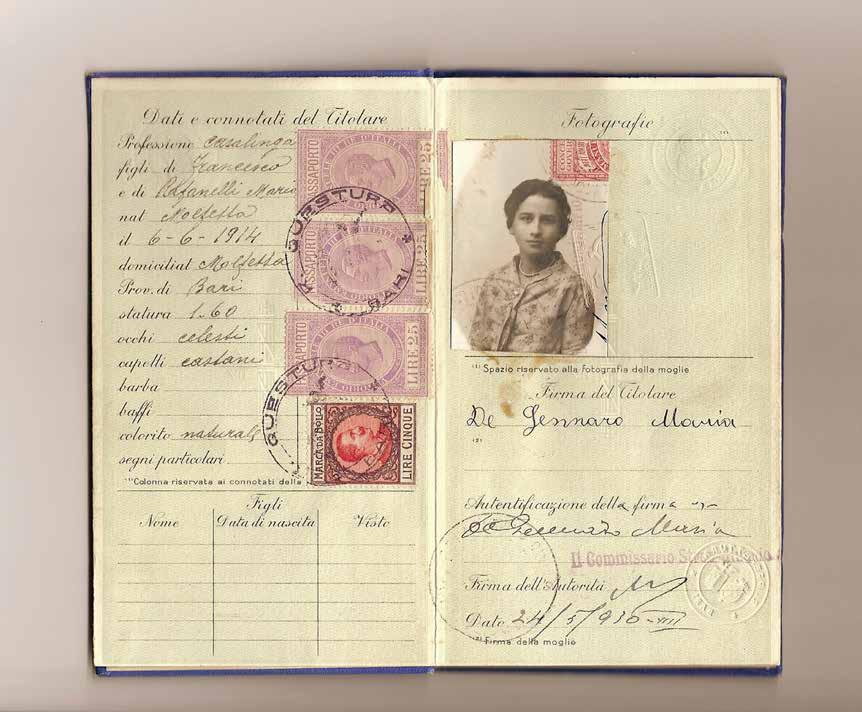 Dati e connotati del Titolare
Professione casalinga
figli di Francesco
e di Rafanelli Maria
nat Molfetta
il 6-6-1914
domiciliat Molfetta
Prov. di Bari
statura 1.60
occhi celesti
capelli castani
barba
baffi
colorito naturale
segni particolari
(1) Colonna riservata ai connotati della
PASSAPORTO
LIRE 25
R. QUESTURA BARI
PASSAPORTO
LIRE 25
PASSAPORTO
LIRE 25
QUESTURA
MARCA DA BOLLO
LIRE CINQUE
Figli
Nome Data di nascita Visto
Fotografie
(1)
(1) Spazio riservato alla fotografia della moglie
Firma del Titolare
De Gennaro Maria
(2)
Autentificazione della firma
De Gennaro Maria
Il Commissario
Firma dell'Autorità
Data 24/5/930-VIII
(2) Firma della moglie